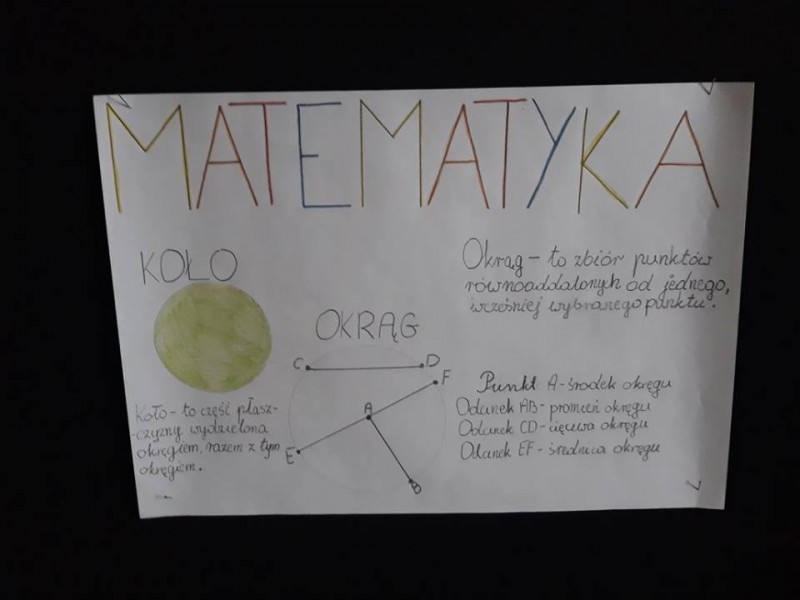 MATEMATYKA
KOŁO
Koło - to część płasz-
-czyzny wydzielona
okręgiem, razem z tym
okręgiem.
OKRĄG
C
D
F
A
E
B
Okrąg - to zbiór punktów
równoaddalonych od jednego,
wcześniej wybranego punktu.
Punkt A - środek okręgu
Odcinek AB - promień okręgu
Odcinek CD - cięciwa okręgu
Odcinek EF - średnica okręgu